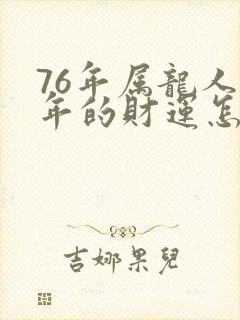 76年属龍人
年的財運怎
吉娜果兒